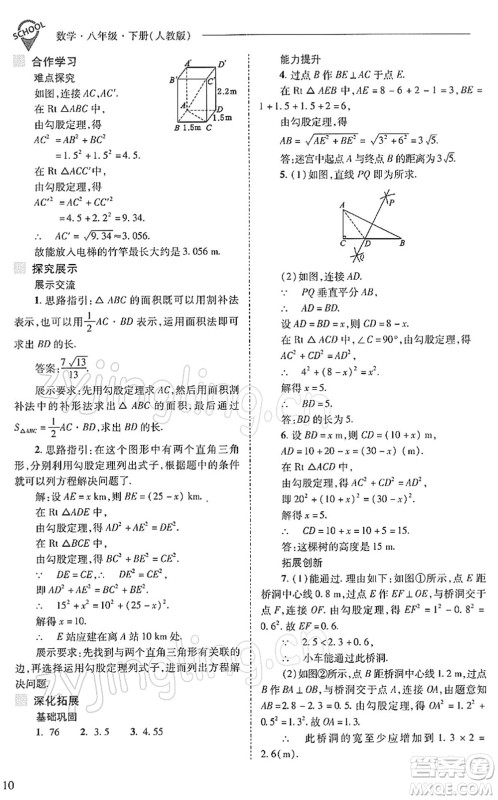 SCHOOL
数学·八年级·下册(人教版)
合作学习
难点探究
如图,连接 AC,AC′.
在 Rt △ABC 中,
由勾股定理,得
AC² = AB² + BC²
= 1.5² + 1.5² = 4.5.
在 Rt △ACC′ 中,
由勾股定理,得
AC′² = AC² + CC′²
= 4.5 + 2.2² = 9.34.
∴ AC′ = √9.34 ≈ 3.056 m.
故能放入电梯的竹竿最大长度是 3.056 m.
D′ C′
A′ B′
2.2m
A D
1.5m
B 1.5m C
探究展示
展示交流
1. 思路指引:△ABC 的面积既可以用割补法
表示,也可以用 1/2 AC·BD 表示,这样列出方程即可
求出 BD 的长.
答案:7√13/13
展示要求:先用勾股定理求出 AC,然后用面积割
补法中的补形法求出 △ABC 的面积,最后用
S△ABC = 1/2 AC·BD 求得 BD 的长.
2. 思路指引:在这个图形中有两个直角三角
形,分别利用勾股定理列出式子,根据题中条件就可
以列方程解决问题了.
解:设 AE = x km,则 BE = (25 - x) km.
在 Rt △ADE 中,
由勾股定理,得 AD² + AE² = DE².
在 Rt △BCE 中,
由勾股定理,得 BC² + BE² = CE².
∵ DE = CE, ∴ DE² = CE².
即 AD² + AE² = BC² + BE².
∴ 15² + x² = 10² + (25 - x)².
解得 x = 10.
∴ E 站应建在离 A 站 10 km 处.
展示要求:先找出两个直角三角形有关的边,
再选择运用勾股定理列出式子,进而列出方程解决
问题.
深化拓展
基础巩固
1. 76 2. 3 3. 4.55
能力提升
4. 过点 B 作 BE⊥AC 于点 E.
在 Rt △AEB 中,AE = 8 - 6 + 2 - 1 = 3,BE =
1 + 5 = 6,由勾股定理,得
AB = √(AE² + BE²) = √(3² + 6²) = 3√5.
答:迷宫中起点 A 与终点 B 的距离是 3√5.
5. (1)如图,直线 PQ 即为所求.
P
A
C D B
Q
(2)如图,连接 AD.
∵ PQ 垂直平分 AB,
∴ AD = BD.
设 AD = BD = x,则 CD = 8 - x.
在 Rt △ACD 中,∠C = 90°,由勾股定理,得
∴ 4² + (8 - x)² = x².
解得 x = 5.
∴ BD = 5.
答:BD 的长为 5.
6. 设 CD = x m,则 AC = (10 + x) m,
AD = 10 + 20 - x = (30 - x) m.
在 Rt △ABC 中,由勾股定理,得
AB² + BC² = AD².
即 20² + (10 + x)² = (30 - x)².
解得 x = 5.
∴ CD = 5.
∴ AC = 10 + x = 15(m).
答:这棵树的高度是 15 m.
拓展创新
7. (1)能通过. 理由如下:如图①所示,点 E 距
桥洞中心线 0.8 m,过点 E 作 EF⊥OE,与桥洞上沿
交于点 F,连接 OF. 由勾股定理,得 EF² = 1² - 0.8² =
0.6². ∴ EF = 0.6.
∵ 2.5 < 2.3 + 0.6,
∴ 小车能通过此桥洞.
(2)如图②所示,点 B 距桥洞中心线 1.2 m,过
点 B 作 AB⊥OB,与桥洞上沿交于点 A. 由题意知
AB = 2.8 - 2.3 = 0.5,连接 OA,由勾股定理,得 OA² =
1.2² + 0.5² = 1.3². ∴ OA = 1.3(m).
∴ 此桥洞的宽至少应增加到 1.3 × 2 =
2.6(m).
10
zyjingling.cn
答案圈
MXQE.COM